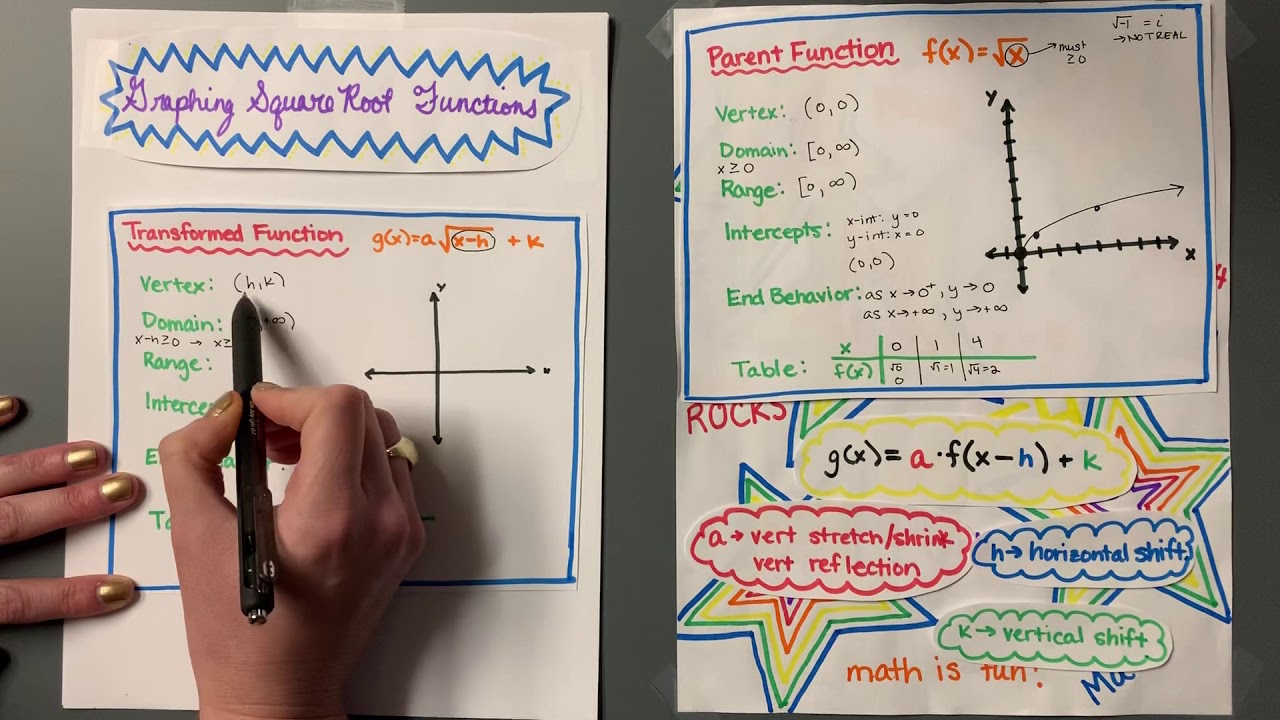 Graphing Square Root Functions
Transformed Function
g(x)=a√x-h + k
Vertex: (h,k)
Domain: +∞)
x-h≥0 → x≥
Range:
y
Parent Function
f(x)=√x
must
≥0
√-1 = i
→NOT REAL
Vertex: (0,0)
Domain: [0,∞)
x≥0
Range: [0,∞)
Intercepts: x-int: y=0
y-int: x=0
(0,0)
End Behavior: as x→0⁺, y→0
as x→+∞, y→+∞
Table: x 0 1 4
f(x) √0 √1=1 √4=2
0
Y
X
ROCKS
g(x)= a·f(x-h)+k
a→ vert stretch/shrink
vert reflection
h→ horizontal shift
k→ vertical shift
math is fun!